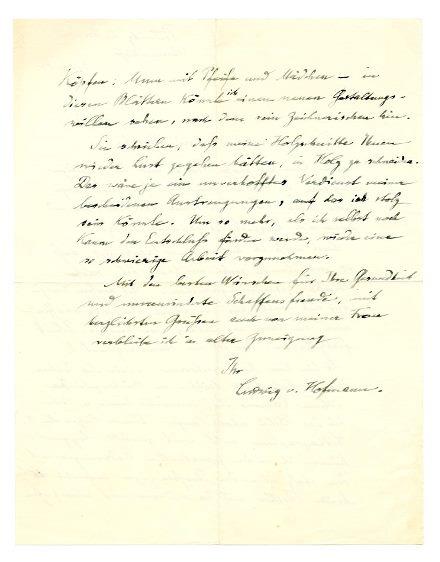 Köpfen: Mann mit Pfeife und Mädchen – in
diesen Blättern könnte ich einen neuen Gestaltungs-
willen sehen, nach dem rein Zeichnerischen hin.
Sie schreiben, daß meine Holzschnitte Ihnen
wieder Lust gegeben hätten, in Holz zu schneiden.
Das wäre ja ein unverhofftes Verdienst meiner
bescheidenen Anstrengungen, auf das ich stolz
sein könnte. Um so mehr, als ich selbst noch
kaum den Entschluß finden werde, wieder eine
so schwierige Arbeit vorzunehmen.
Mit den besten Wünschen für Ihre Gesundheit
und unverminderte Schaffensfreude, mit
herzlichsten Grüßen auch von meiner Frau
verbleibe ich in alter Zuneigung
Ihr
Ludwig v. Hofmann.